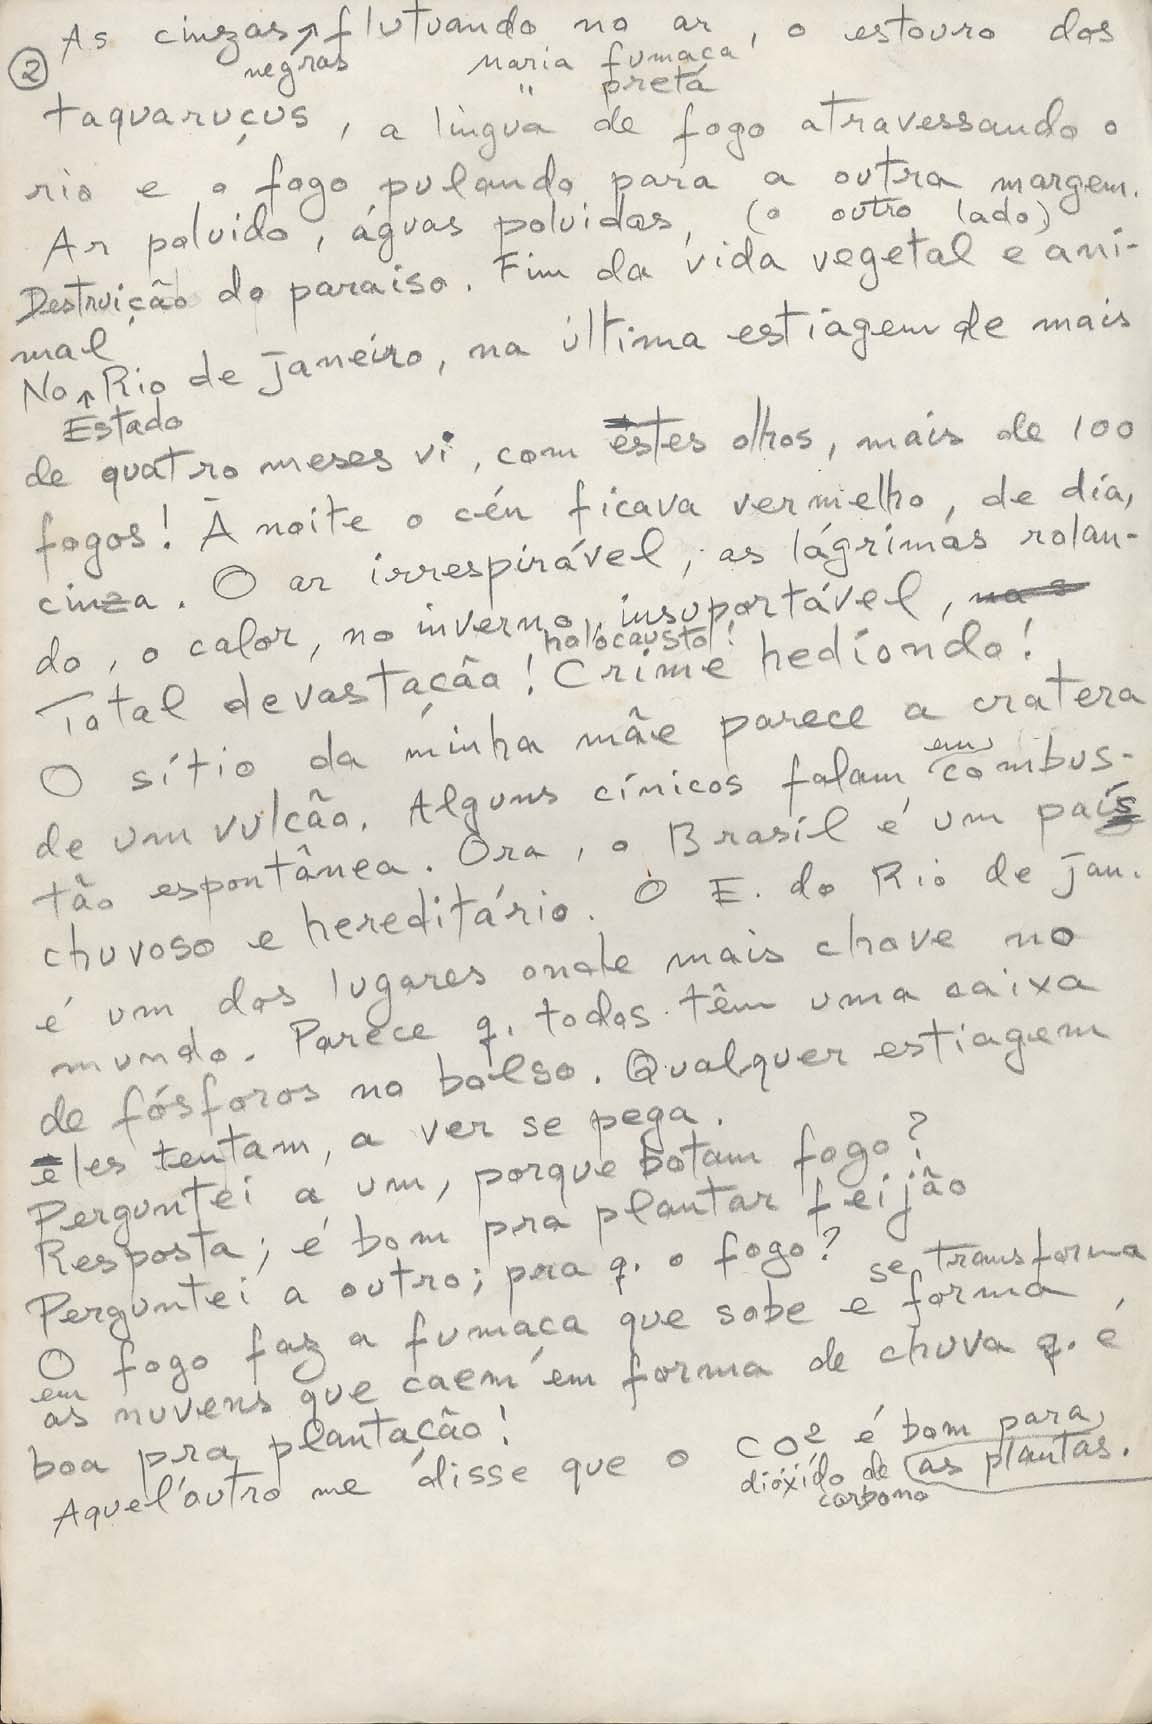 As cinzas ↗ flutuando no ar, o estouro dos
②
negras
Maria fumaça
" preta
taquaruçus, a língua de fogo atravessando o
rio e o fogo pulando para a outra margem.
(o outro lado)
Ar poluido, águas poluidas,
Destruição do paraiso. Fim da vida vegetal e ani-
mal
No ↑ Rio de Janeiro, na última estiagem de mais
Estado
de quatro meses vi, com estes olhos, mais de 100
fogos! À noite o céu ficava vermelho, de dia,
cinza. O ar irrespirável, as lágrimas rolan-
do, o calor, no inverno, insuportável, nos
holocausto!
Total devastação! Crime hediondo!
O sítio da minha mãe parece a cratera
em
de um vulcão. Alguns cínicos falam combus-
tão espontânea. Ora, o Brasil é um país
chuvoso e hereditário. O E. do Rio de Jan.
é um dos lugares onde mais chove no
mundo. Parece q. todos têm uma caixa
de fósforos no bolso. Qualquer estiagem
eles tentam, a ver se pega.
Perguntei a um, porque botam fogo?
Resposta; é bom pra plantar feijão
Perguntei a outro; pra q. o fogo?
se transforma
O fogo faz a fumaça que sobe e forma
em
as nuvens que caem em forma de chuva q. é
boa pra plantação!
Aquel'outro me disse que o CO2 é bom para
dióxido de carbono
as plantas.